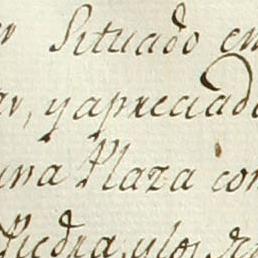 Situado en
y apreciado
una Plaza con
Piedra, y los